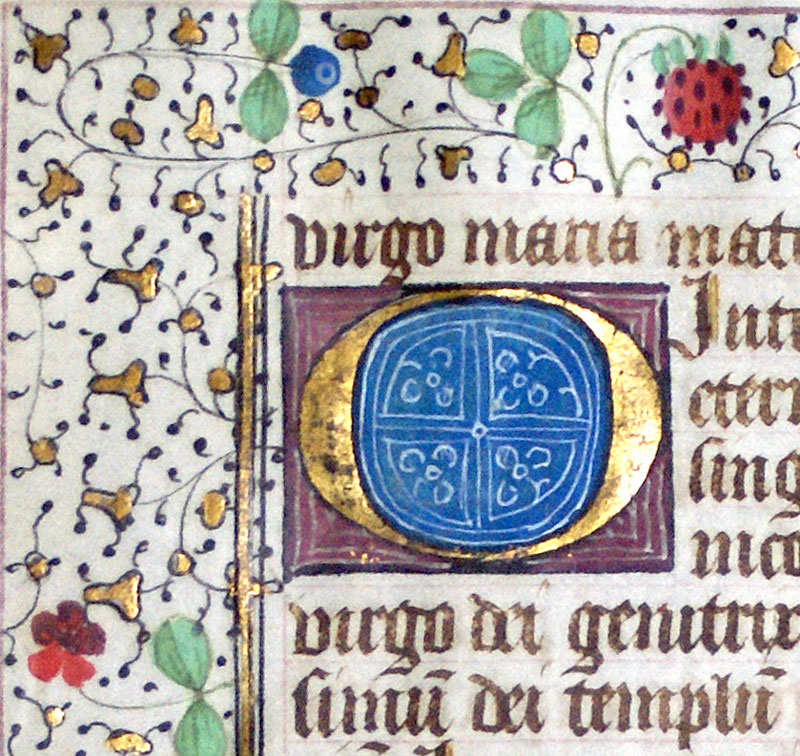 virgo maria mat
O Inte
etern
sing
nico
virgo dei genitrix
simū dei templū